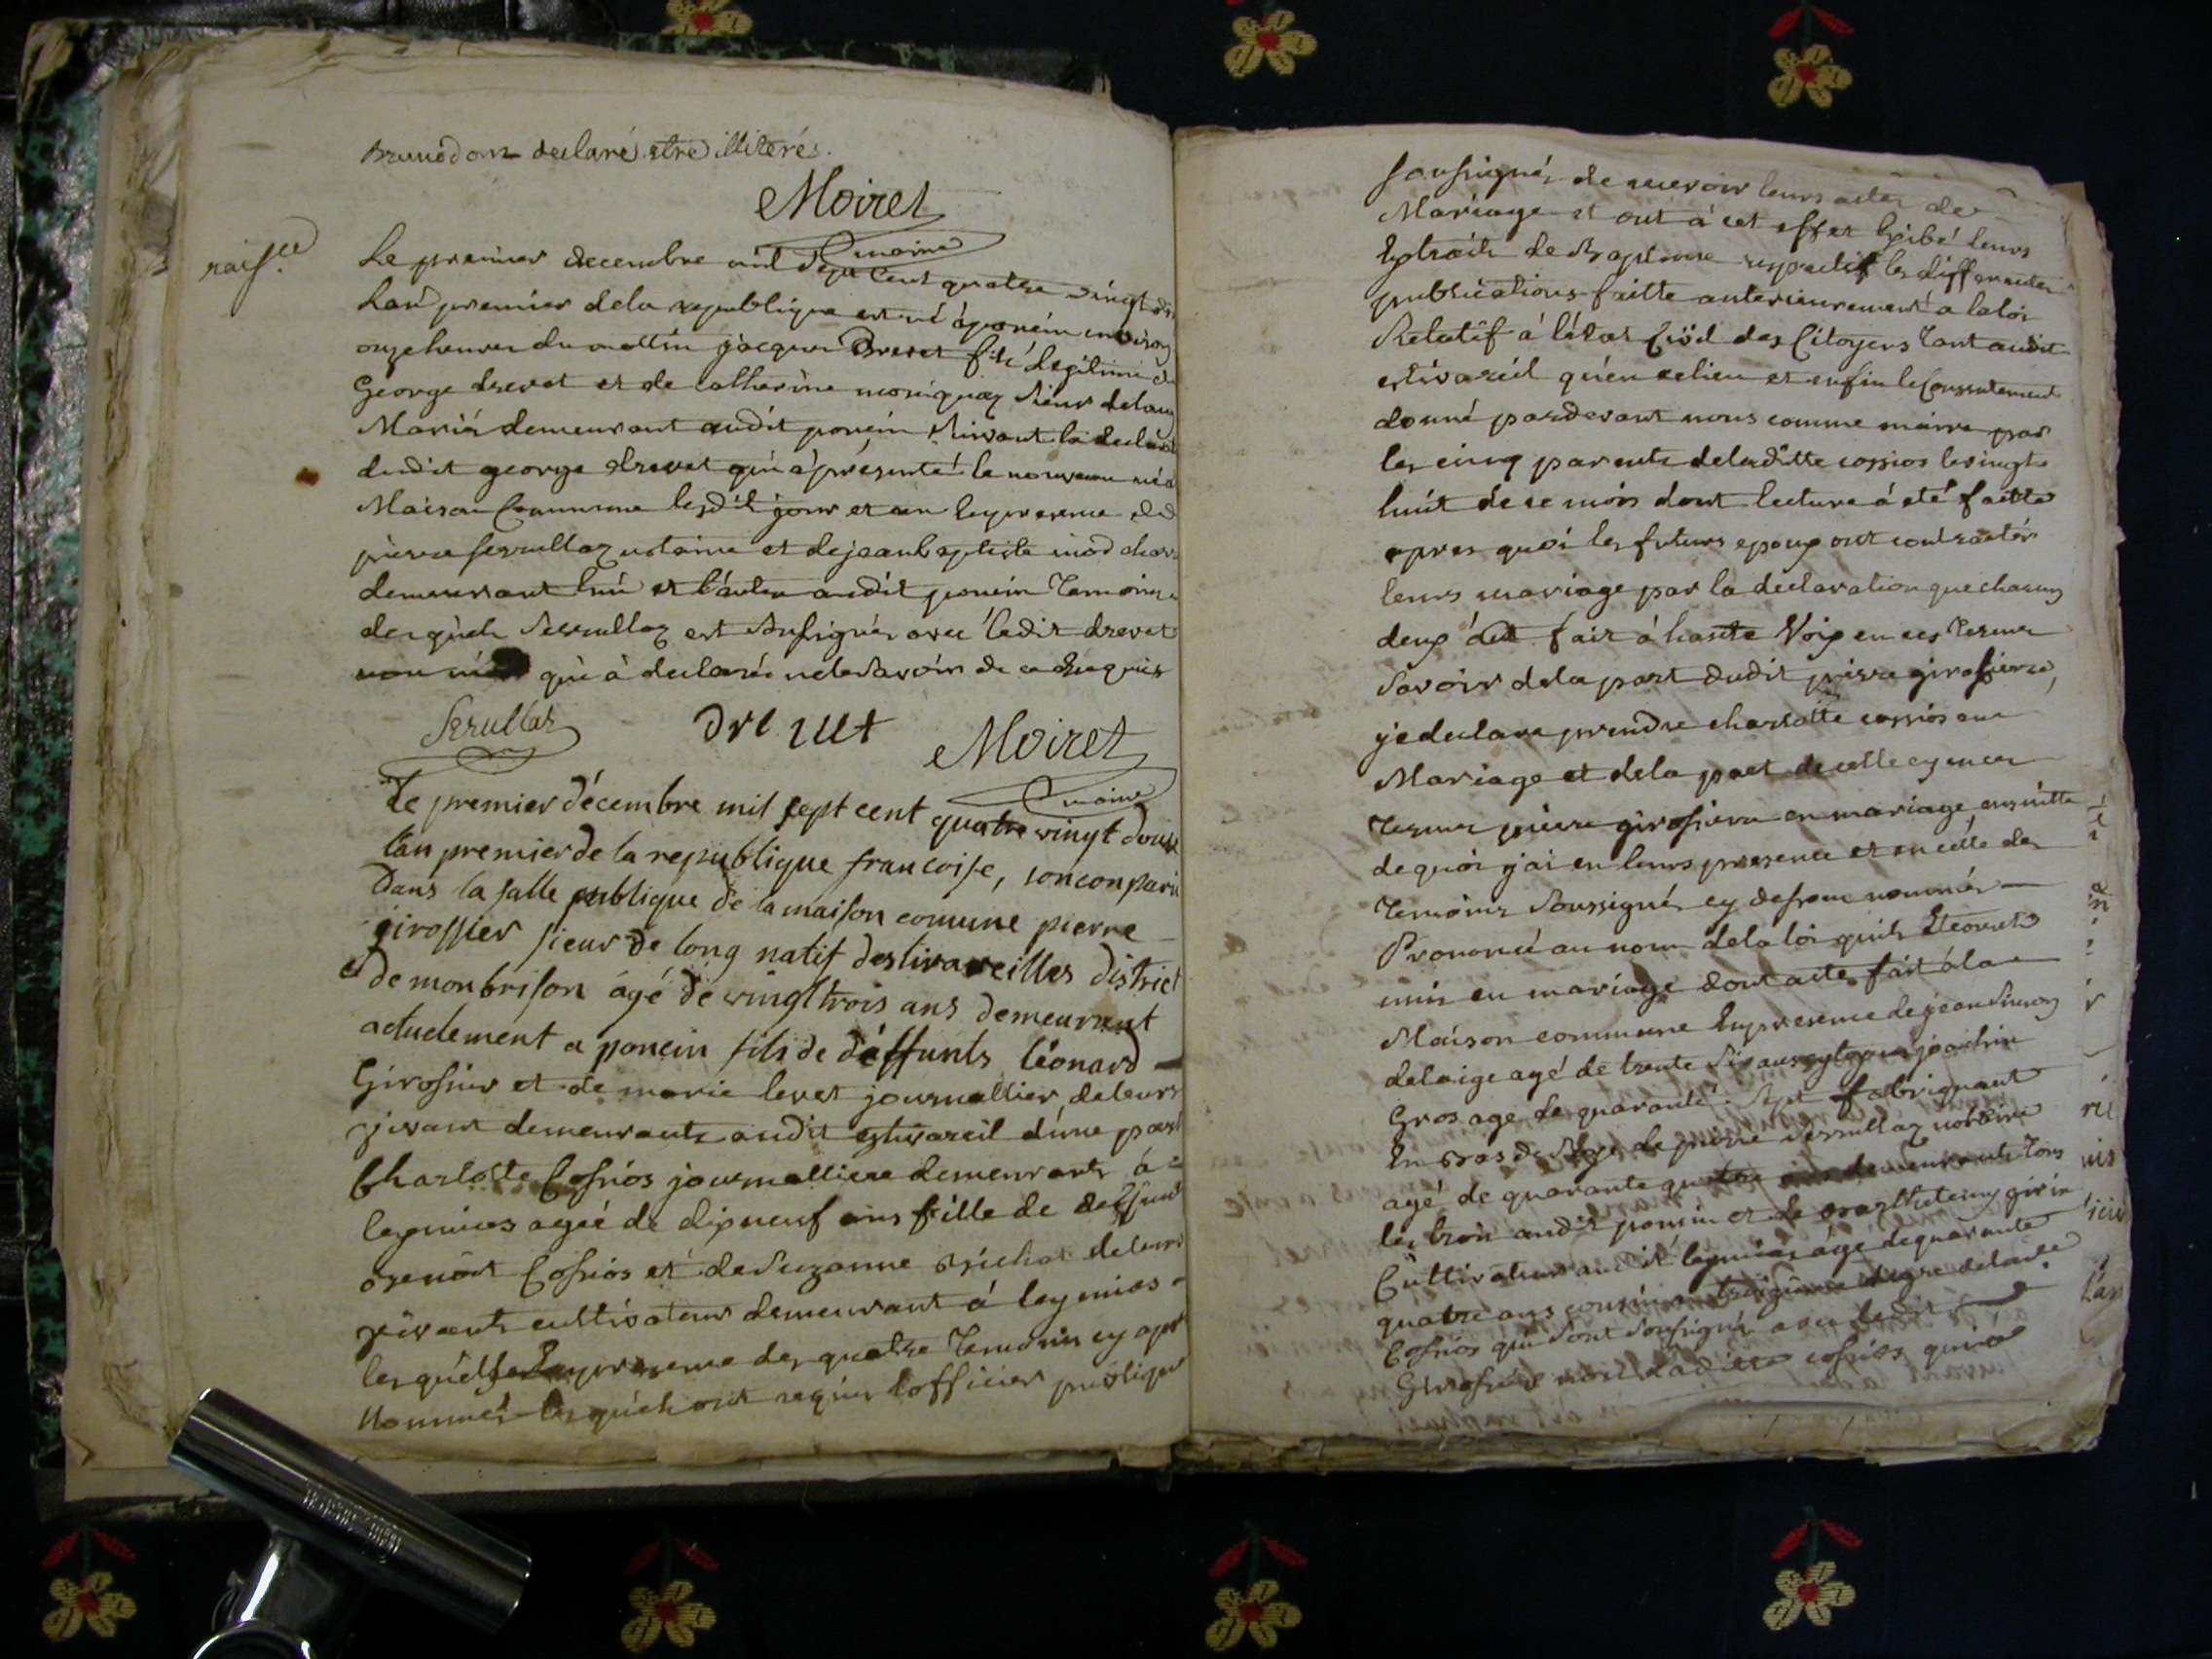 Brunod ont declaré etre illiterés.
Moiret
maire
naisce
Le premier decembre mil sept cent quatre vingt
Lan premier dela republique est né à poncin environ
onze heures du mattin jacques Drevet fils légitime
George drevet et de catherine sieur delong
Mariés demeurant audit poncin suivant la
dudit george drevet qui à présenté le nouveau né
Maison Commune lesdit jour et an
pierre serrullaz notaire et dejeanbaptiste
demeurant lun et l'autre audit poncin temoins
desquels Serrullaz est soussignés avec ledit drevet
non qui à declarés nelesavoir de ce requis
Serullaz drevet Moiret
maire
Le premier décembre mil sept cent quatre vingt douze
L'an premier de la republique francoise, sonconparu
Dans la salle publique de la maison comune pierre
girossier sieur de long natif destivareilles district
de monbrison ágé de vingttrois ans demeurant
actuelement a poncin fils de déffunts léonard
Girosier et de marie levet journallier deleurs
vivant demeurants audit estivareil d'une part
Charlotte Cosïos journalliere demeurants à
leymias ageé de dixneuf ans fille de deffunt
benoit Cosïos et de Suzanne deleurs
vivants cultivateur demeurant á leymias
lesquélles des quatre temoins cy apr
Nommés lesquels ont requis l'officier publique
soussignés de recevoir leurs actes de
Mariage et ont à cet effet Exibé leurs
Extraits de Baptême respectif les differentes
publications faitte anterieurement a laloi
Relatif á létat Civil des Citoyens tant audit
estivareil qu'en celieu et enfin leConsentement
donné pardevant nous comme maire par
les cinq parents deladitte cossios levingt
huit de ce mois dont lecture á eté faitte
apres quoi les futurs epoux ont contractér
leurs mariage par la declaration que chacun
deux ont fait à haute Voix en ces termes
Savoir dela part dudit pierre girosiere,
je declare prendre charlotte cossios en
Mariage et dela part de celle cy en ces
termes pierre girosiere en mariage, ensuitte
de quoi j'ai en leurs presence et en celle des
temoins soussignés cy dessous nommés
Prononcé au nom dela loi quils Etoient
unis en mariage dont acte fait á la
Maison commune Enpresence dejean
delaige agé de trente six ans joachin
Gros agé de quarante sept fabriquant
En bas de pierre serrullaz notaire
agé de quarante quatre ans demeurants tous
les trois audit poncin et de barthelemy
Cultivateur audit leymias ágé dequarante
quatre ans cousin au troizieme degre delad.
Cosïos qui sont soussignés avec ledit
Girosier non Ladite cosïos qui à